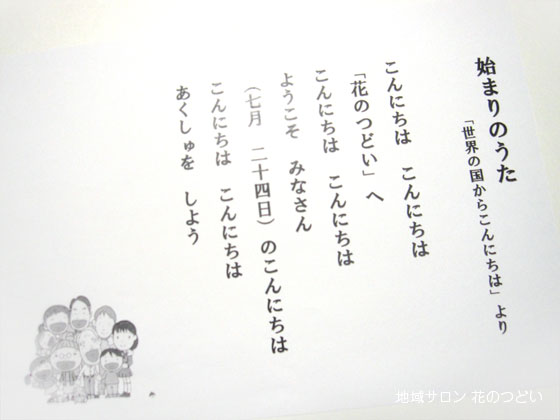 始まりのうた
「世界の国からこんにちは」より
こんにちは　こんにちは
「花のつどい」へ
こんにちは　こんにちは
ようこそ　みなさん
（七月　二十四日）のこんにちは
こんにちは　こんにちは
あくしゅを　しよう
地域サロン 花のつどい